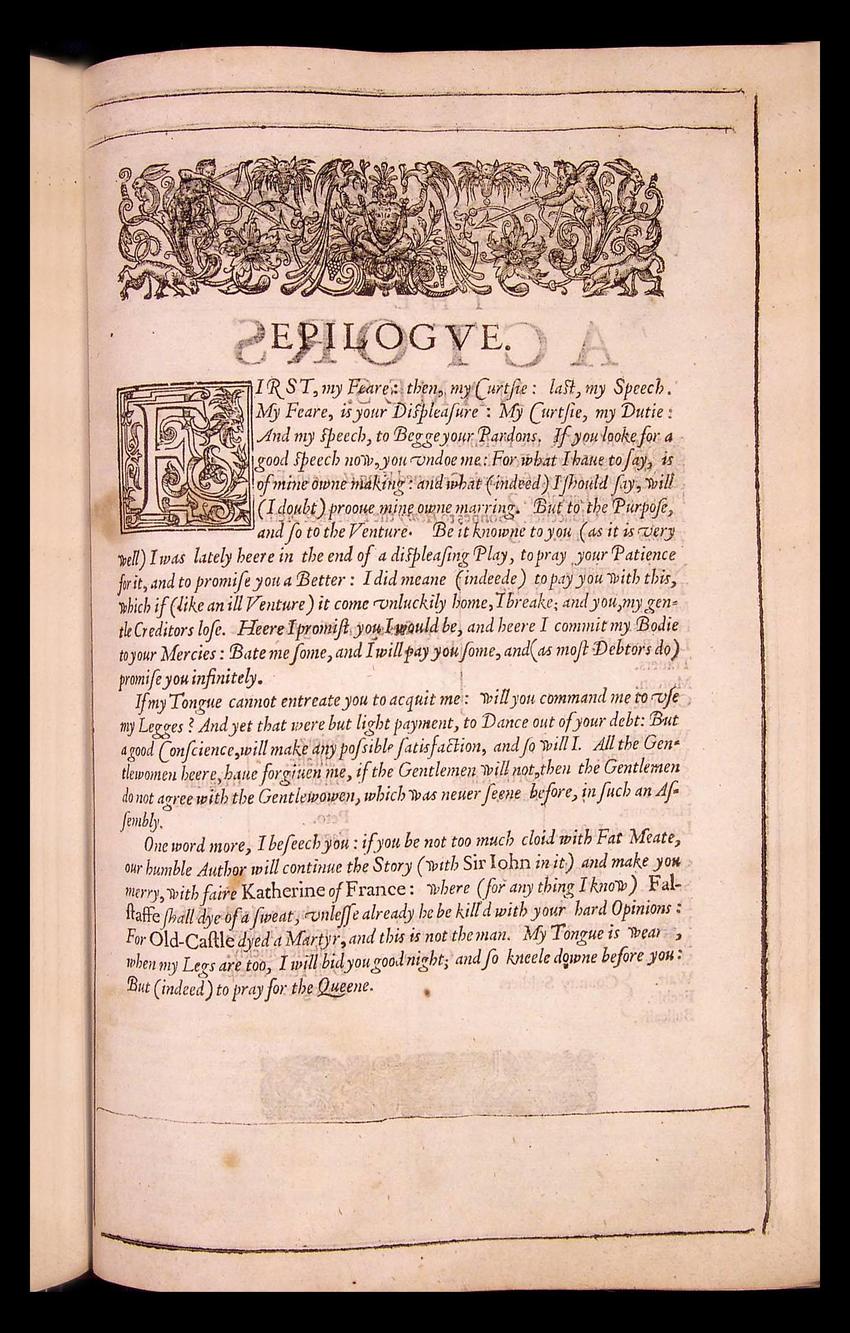 EPILOGVE.
FIRST, my Feare: then, my Curtſie: laſt, my Speech.
My Feare, is your Diſpleaſure: My Curtſie, my Dutie:
And my ſpeech, to Begge your Pardons. If you looke for a
good ſpeech now, you vndoe me: For what I haue to ſay, is
of mine owne making: and what (indeed) I ſhould ſay, will
(I doubt) prooue mine owne marring. But to the Purpoſe,
and ſo to the Venture. Be it knowne to you (as it is very
well) I was lately heere in the end of a diſpleaſing Play, to pray your Patience
for it, and to promiſe you a Better: I did meane (indeede) to pay you with this,
which if (like an ill Venture) it come vnluckily home, I breake; and you, my gen-
tle Creditors loſe. Heere I promiſt you I would be, and heere I commit my Bodie
to your Mercies: Bate me ſome, and I will pay you ſome, and (as moſt Debtors do)
promiſe you infinitely.
If my Tongue cannot entreate you to acquit me: will you command me to vſe
my Legges? And yet that were but light payment, to Dance out of your debt: But
a good Conſcience, will make any poſsible ſatisfaction, and ſo will I. All the Gen-
tlewomen heere, haue forgiuen me, if the Gentlemen will not, then the Gentlemen
do not agree with the Gentlewowen, which was neuer ſeene before, in ſuch an Aſ-
ſembly.
One word more, I beſeech you: if you be not too much cloid with Fat Meate,
our humble Author will continue the Story (with Sir Iohn in it) and make you
merry, with faire Katherine of France: where (for any thing I know) Fal-
ſtaffe ſhall dye of a ſweat, vnleſſe already he be kill'd with your hard Opinions:
For Old-Caſtle dyed a Martyr, and this is not the man. My Tongue is wear ,
when my Legs are too, I will bid you good night; and ſo kneele downe before you:
But (indeed) to pray for the Queene.